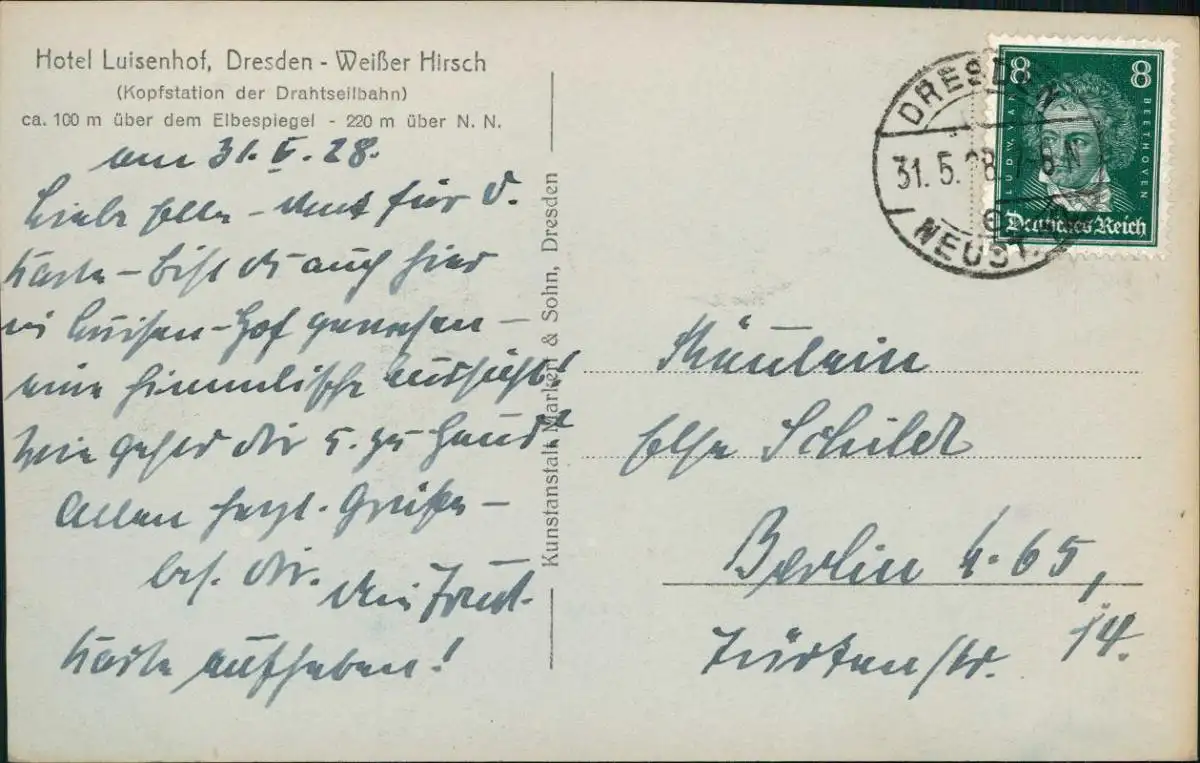 Hotel Luisenhof, Dresden - Weißer Hirsch
(Kopfstation der Drahtseilbahn)
ca. 100 m über dem Elbespiegel - 220 m über N. N.
am 31. V. 28.
Liebe Elle - Dank für D.
Karte - Bist du auch hier
im Luisen-Hof gewesen -
eine himmlische Aussicht!
Wie geht es dir u. zu Haus?
Allen herzl. Grüße -
bes. dir. dein Trud.
Karte aufheben!
Kunstanstalt Markert & Sohn, Dresden
8 8
LUDW. VAN BEETHOVEN
Deutsches Reich
DRESDEN
31. 5. 28. 7-8 N
NEUST.
Fräulein
Else Schildt
Berlin N. 65,
Türkenstr. 14.